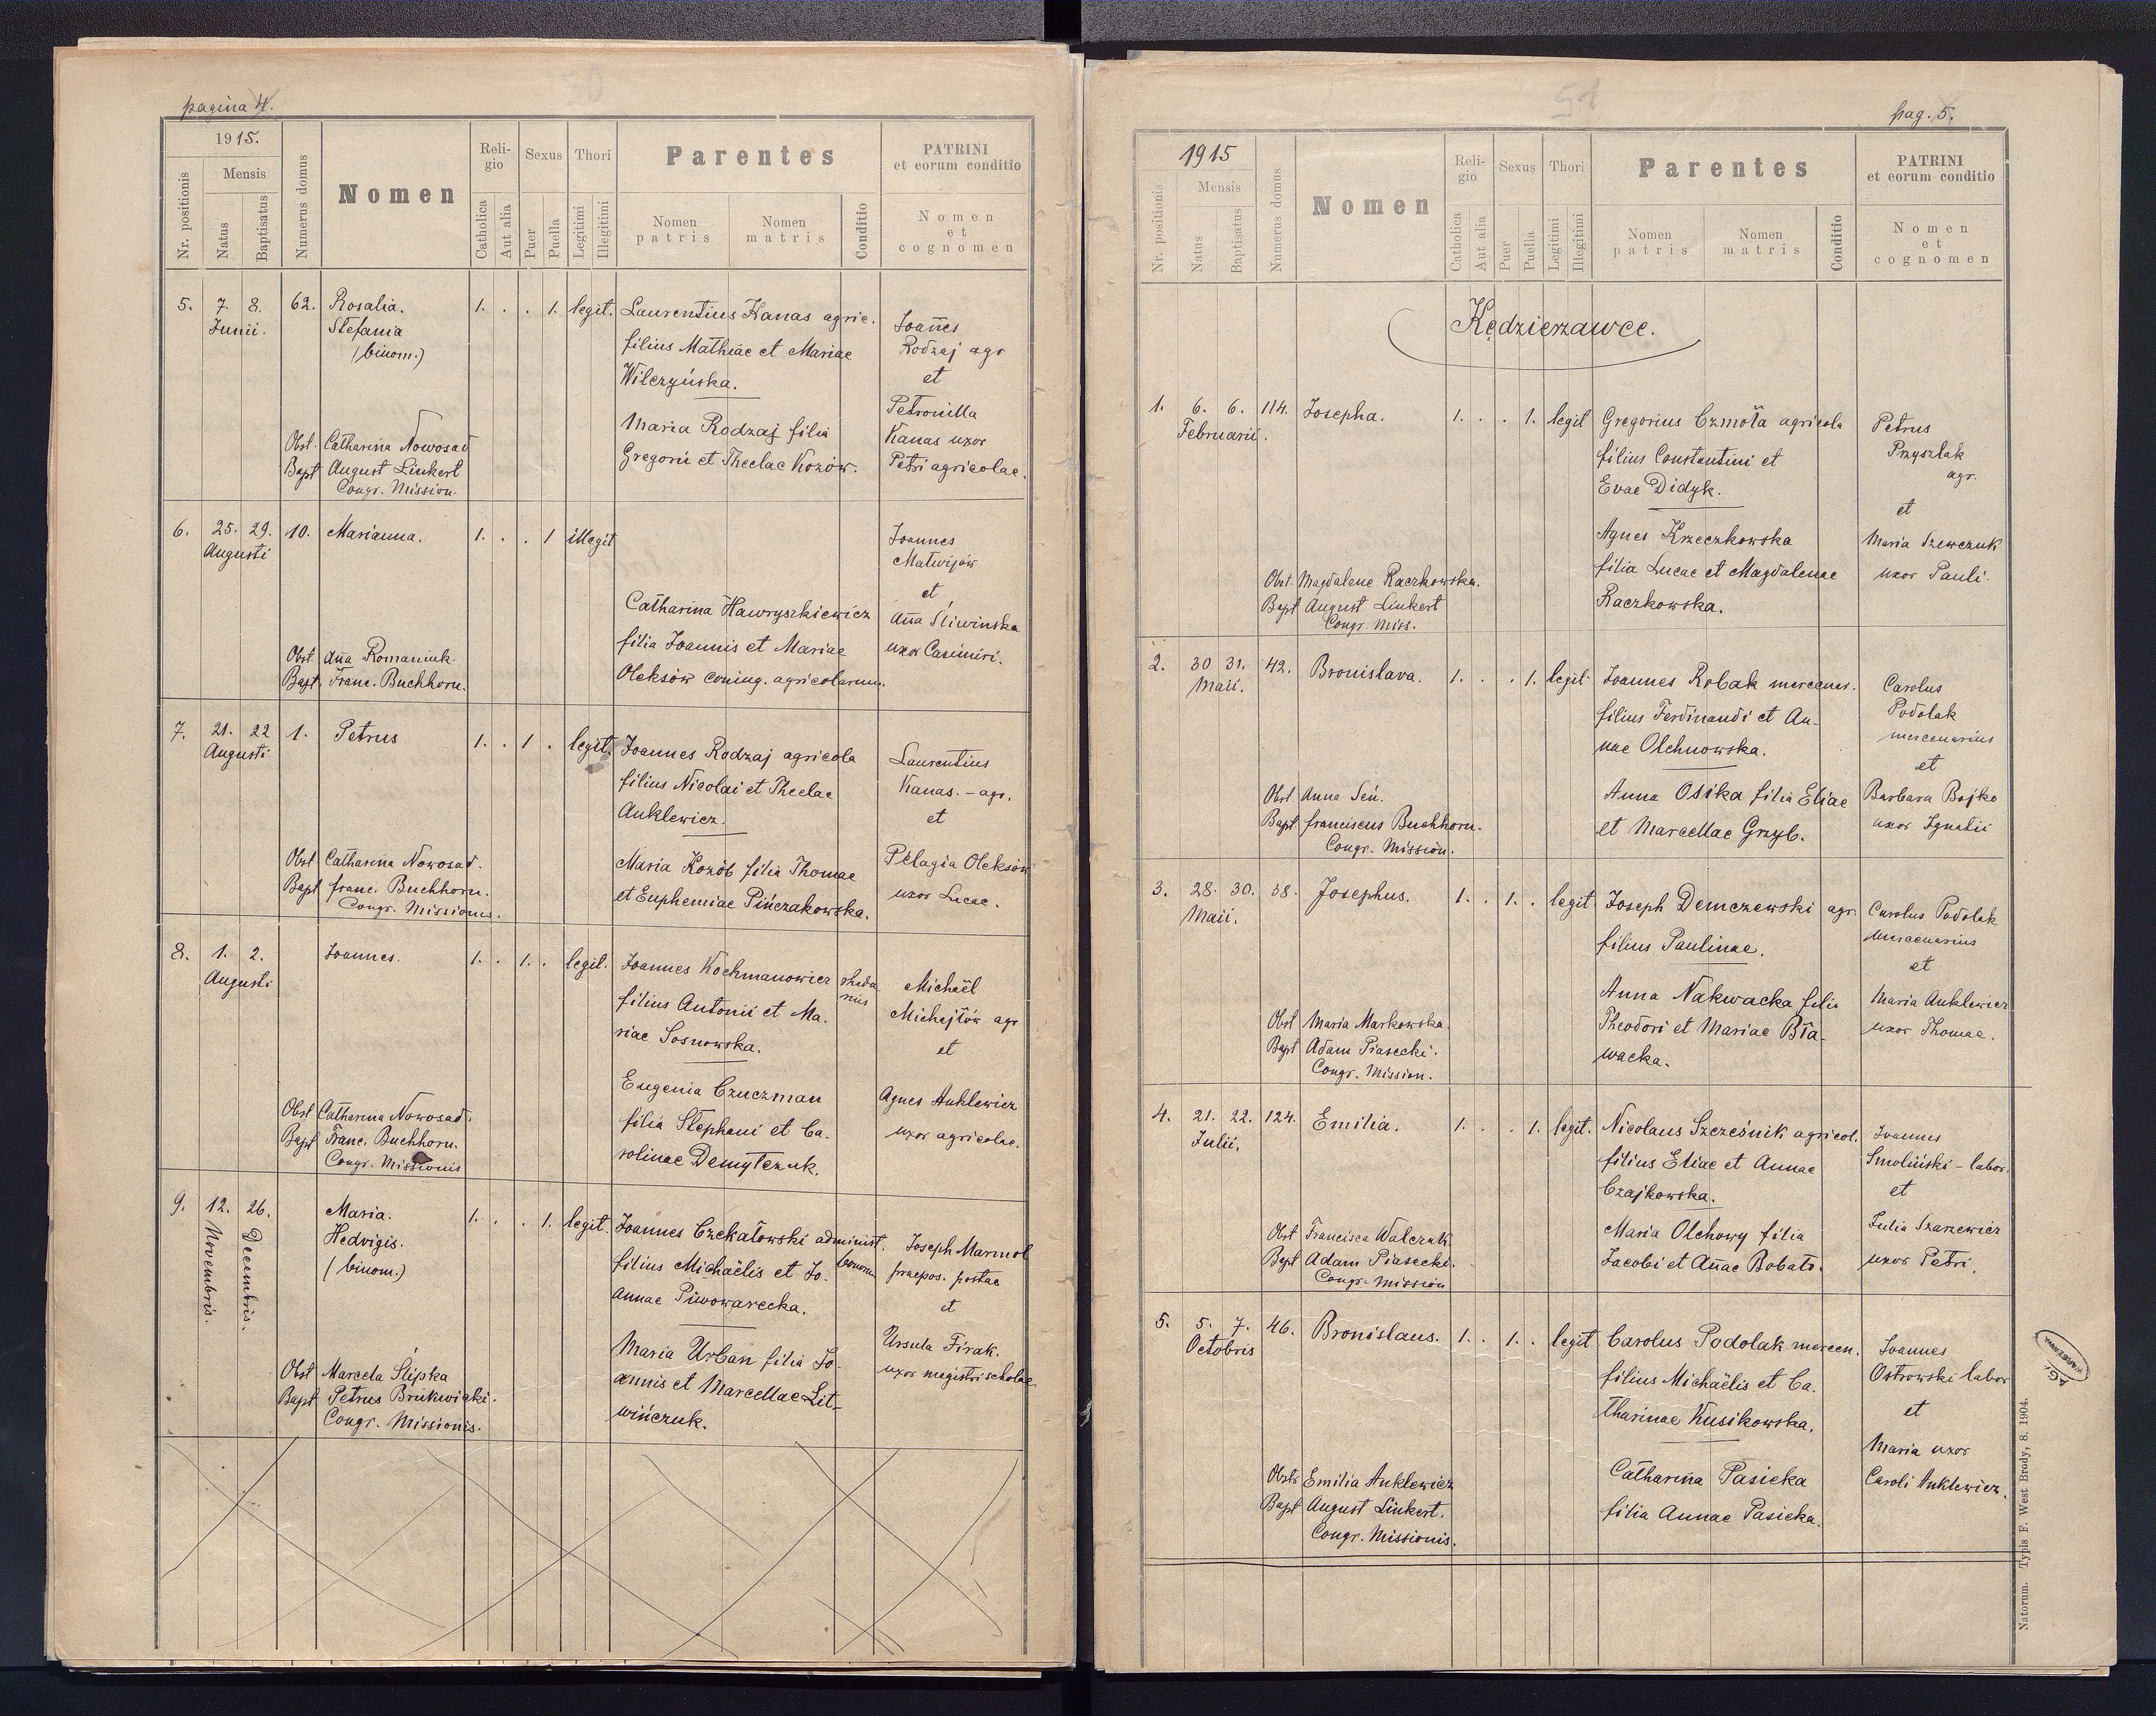 pagina 4.
1915.
Nr. positionis
Mensis
Natus
Baptisatus
Numerus domus
Nomen
Reli-
gio
Catholica
Aut alia
Sexus
Puer
Puella
Thori
Legitimi
Illegitimi
Parentes
Nomen
patris
Nomen
matris
Conditio
PATRINI
et eorum conditio
Nomen
et
cognomen
5. 7. 8. 62. Rosalia. 1. . . 1. legit. Laurentius Kanas agric.
Junii. Stefania
(binom.)
filius Mathiae et Mariae
Wilczyńska.
Maria Rodzaj filia
Gregorii et Theclae Kozów.
Joannes
Rodzaj agr
et
Petronilla
Kanas uxor
Petri agricolae.
Obst. Catharina Nowosad
Bapt August Linkert
Congr. Mission.
6. 25. 29. 10. Marianna. 1. . . 1 illegit
Augusti
Catharina Hawryszkiewicz
filia Joannis et Mariae
Oleksów coniug. agricolarum.
Joannes
Matwijów
et
Anna Śliwinska
uxor Casimiri.
Obst. Anna Romaniuk
Bapt. Franc. Buchhorn.
7. 21. 22 1. Petrus 1. . 1 . legit. Joannes Rodzaj agricola
Augusti
filius Nicolai et Theclae
Anklewicz.
Maria Kozób filia Thomae
et Euphemiae Pińczakowska.
Laurentius
Kanas. - agr.
et
Pelagia Oleksów
uxor Lucae.
Obst Catharina Nowosad.
Bapt franc. Buchhorn.
Congr. Missionis.
8. 1. 2. Joannes. 1. . 1. . legit. Joannes Kochmanowicz
Augusti
filius Antonii et Ma-
riae Sosnowska.
Eugenia Czuczman
filia Stephani et Ca-
rolinae Demytczuk.
Michaël
Michajłów agr
et
Agnes Anklewicz
uxor agricolae.
Obst Catharina Nowosad.
Bapt Franc. Buchhorn.
Congr. Missionis
9. 12. 26. Maria. 1. . . 1. legit. Joannes Czekałowski administ.
Novembris. Decembris. Hedvigis.
(binom.)
bonorum
filius Michaëlis et Jo-
annae Piwowarecka.
Maria Urban filia Jo-
annis et Marcellae Lit-
wińczuk.
Joseph Marmol
praepos. postae
et
Ursula Firak.
uxor magistri scholae
Obst Marcela Ślipka
Bapt Petrus Brukwicki.
Congr. Missionis.
51
pag. 5.
1915
Nr. positionis
Mensis
Natus
Baptisatus
Numerus domus
Nomen
Reli-
gio
Catholica
Aut alia
Sexus
Puer
Puella
Thori
Legitimi
Illegitimi
Parentes
Nomen
patris
Nomen
matris
Conditio
PATRINI
et eorum conditio
Nomen
et
cognomen
Kędzierzawce.
1. 6. 6. 114. Josepha. 1. . . 1. legit Gregorius Czmoła agricola
Februarii.
filius Constantini et
Evae Didyk.
Agnes Krzeczkowska
filia Lucae et Magdalenae
Raczkowska.
Petrus
Przyszlak
agr.
et
Maria Szewczuk
uxor Pauli.
Obst. Magdalene Raczkowska.
Bapt August Linkert
Congr. Miss.
2. 30 31. 42. Bronislava. 1. . . 1. legit. Joannes Robak mercenar.
Maii.
filius Ferdinandi et An-
nae Olchnowska.
Anna Osika filia Eliae
et Marcellae Grzyb.
Carolus
Podolak
mercenarius
et
Barbara Bojko
uxor Ignatii
Obst Anna Seń.
Bapt franciscus Buchhorn.
Congr. Mission.
3. 28. 30. 38. Josephus. 1. . 1. . legit Joseph Demczewski agr.
Maii.
filius Paulinae.
Anna Nakwacka filia
Theodori et Mariae Bła-
wacka.
Carolus Podolak
mercenarius
et
Maria Anklewicz
uxor Thomae.
Obst Maria Markowska.
Bapt Adam Piasecki.
Congr. Mission.
4. 21. 22. 124. Emilia. 1. . . 1. legit. Nicolaus Szcześnik agricol.
Julii.
filius Eliae et Annae
Czajkowska.
Maria Olchowy filia
Jacobi et Annae Bobato.
Joannes
Smoliński - labor.
et
Julia Szarzewicz
uxor Petri.
Obst Francisca Walczuk.
Bapt Adam Piasecki.
Congr. Mission
5. 5. 7. 46. Bronislaus. 1. . 1. . legit Carolus Podolak mercen.
Octobris
filius Michaëlis et Ca-
tharinae Kusikowska.
Catharina Pasicka
filia Annae Pasicka.
Joannes
Ostrowski labor
et
Maria uxor
Caroli Anklewicz.
Obstr Emilia Anklewicz
Bapt August Linkert.
Congr. Missionis.
Natorum. Typis F. West Brody, 8. 1904.